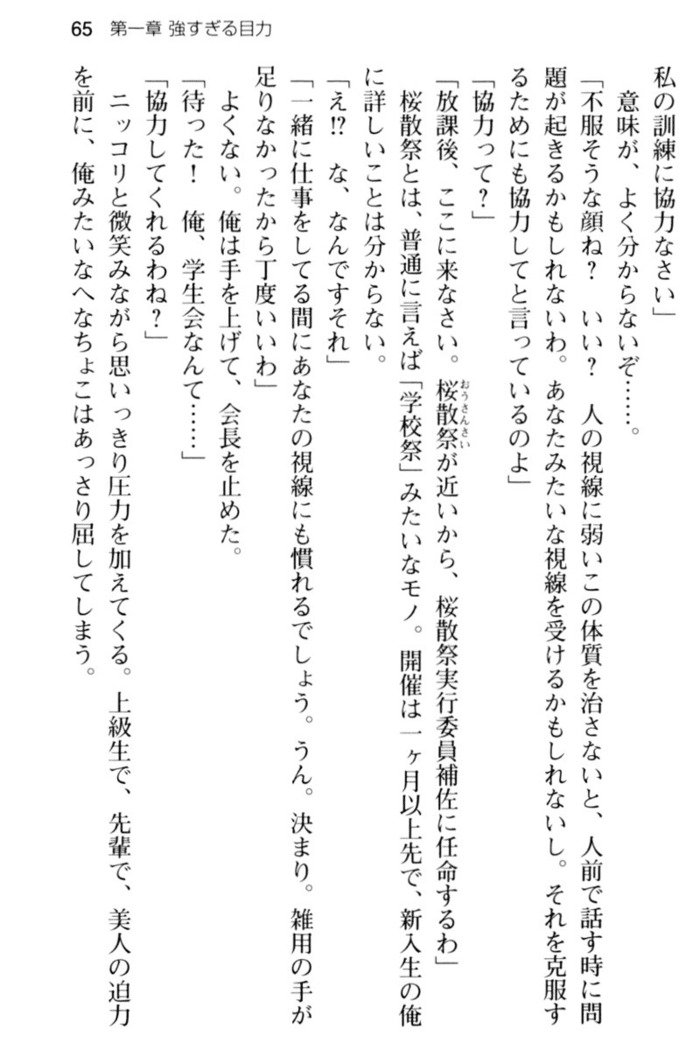 65 第一章 強すぎる目力
私の訓練に協力なさい」
　意味が、よく分からないぞ……。
「不服そうな顔ね？　いい？　人の視線に弱いこの体質を治さないと、人前で話す時に問
題が起きるかもしれないわ。あなたみたいな視線を受けるかもしれないし。それを克服す
るためにも協力してと言っているのよ」
「協力って？」
「放課後、ここに来なさい。桜散祭が近いから、桜散祭実行委員補佐に任命するわ」
おうさんさい
　桜散祭とは、普通に言えば「学校祭」みたいなモノ。開催は一ヶ月以上先で、新入生の俺
に詳しいことは分からない。
「え!?　な、なんですそれ」
「一緒に仕事をしてる間にあなたの視線にも慣れるでしょう。うん。決まり。雑用の手が
足りなかったから丁度いいわ」
　よくない。俺は手を上げて、会長を止めた。
「待った！　俺、学生会なんて……」
「協力してくれるわね？」
　ニッコリと微笑みながら思いっきり圧力を加えてくる。上級生で、先輩で、美人の迫力
を前に、俺みたいなへなちょこはあっさり屈してしまう。